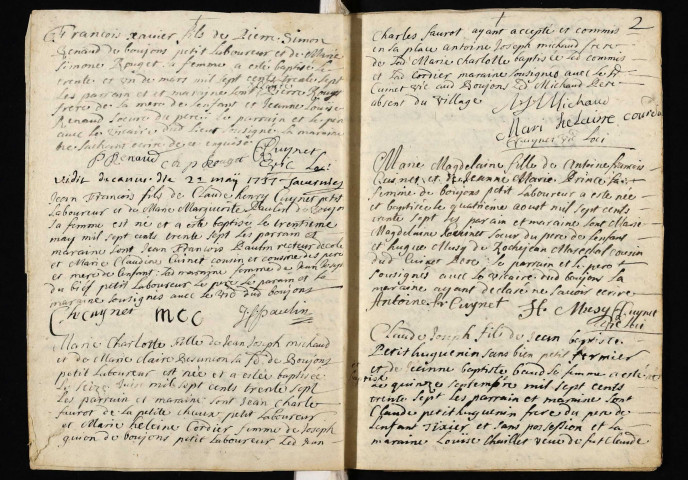 François xavier fils de Pierre Simon
Renaud de boujons petit Laboureur et de Marie
Simone Rouget sa femme a este baptise
trente et un de mars mil sept cents trente sept
Les parrain et marainne sont Pierre Rouget
frere de la mere de lenfant et Jeanne Louise
Renaud soeure du pere le parrain et le pere
avec le vicaire dud Lieu soussigne la maraine
P Renaud C P Rouget Cuynet
vic Loci
vidit decanus die 22 maÿ 1737
Jean François fils de Claude henry Cuynet petit
Laboureur et de Marie Marguerite Paulin de Boujon
sa femme est né et a esté baptise le trentieme
may mil sept cents trente sept Les parrain et
maraine sont Jean François Paulin recteur decole
et Marie Claudine Cuinet cousin et cousine des pere
et mere de lenfant lad marainne femme de Jean Joseph
du bief petit Laboureur le pere le parain et la
maraine soussignes avec le vic dud boujons
Ch Cuynet MCC J f paulin
Marie Charlotte fille de Jean Joseph michaud
et de Marie Claire Besancon sa f de Boujons
petit Laboureur est née et a estée baptisée
Le seize Juin mil sept cents trente sept
Les parrain et maraine sont Jean Charle
faurot de la petite chaux petit Laboureur
et Marie heleine Cordier femme de Joseph
guion de boujons petit Laboureur Led Jean
2
Charles faurot ayant accepte et commis
en sa place antoine Joseph michaud frere
de lad Marie charlotte baptisée Led commis
et lad Cordier maraine soussignes avec le Sr
Cuinet vic aud Boujons led Michaud Pere
absent du village
A J Michaud
Mari helainne courdie
Cuynet vic Loci
Marie Magdelaine fille de Antoine françois
Cuinet et de Jeanne Marie Prince sa
femme de boujons petit Laboureur a este née
et baptisée le quatrieme aoust mil sept cents
trente sept les parain et maraine sont Marie
Magdelaine Cuinet soeur du pere de lenfant
et hugue Musy de Rochejean Marechal cousin
dud Cuinet Pere le parrain et le pere
soussignés avec le vicaire dud boujons la
maraine ayant declaré ne savoir ecrire
Antoine fr Cuynet H Musy Cuynet
Claude Joseph fils de Jean baptiste
Petit huguenin sans bien petit fermier
et de Jeanne baptiste baud sa femme a esté né
et baptise
le quinze septembre mil sept cents
trente sept Les parrain et maraine sont
Claude petit huguenin frere du pere de
lenfant et sans possession et la
maraine Louise Chaillet veuve de fut Claude